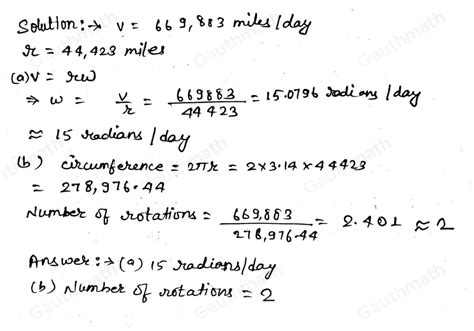 Solution:→ v = 669,883 miles/day
r = 44,423 miles
(a) v = rω
⇒ ω = v/r = 669883/44423 = 15.0796 radians/day
≈ 15 radians/day
(b) circumference = 2πr = 2×3.14×44423
= 278,976.44
Number of rotations = 669,883/278,976.44 = 2.401 ≈ 2
Answer:→ (a) 15 radians/day
(b) Number of rotations = 2
Gauthmath